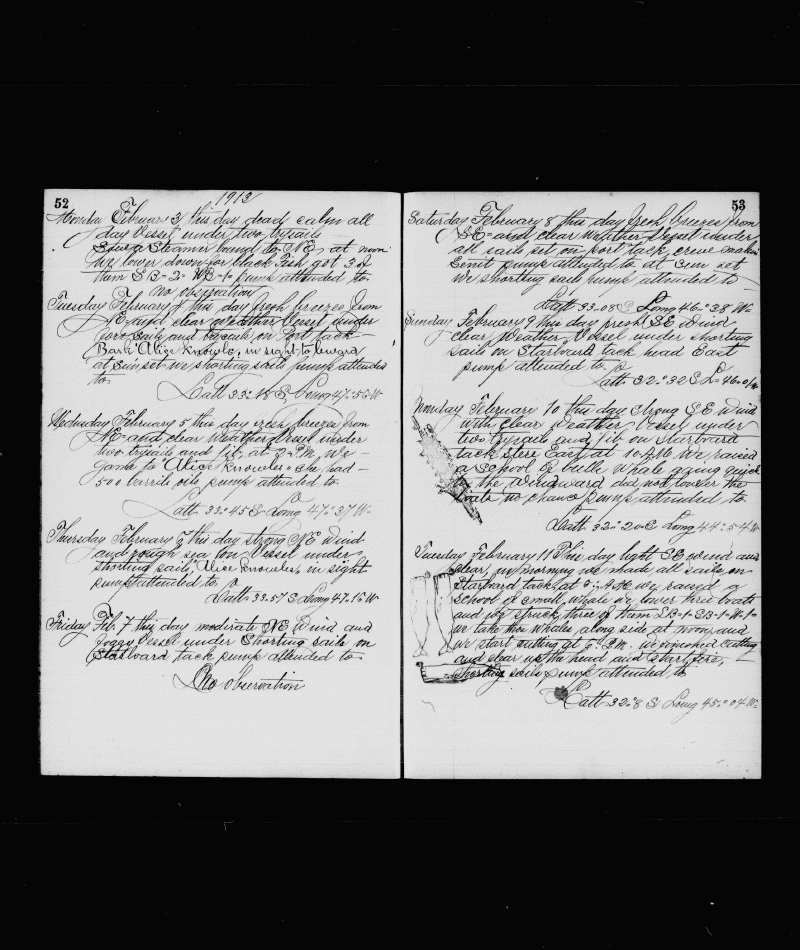 52
1913
Monday February 3 this day dead calm all
day Vessel under two trysails
Steamer bound to NE, at noon
we lower down for black Fish got 3 of
them S B-2- WB-1- pump attended to
no observation
Tuesday February 4 this day fresh breezes from
NE and clear weather Vessel under
two sails and trysails on Port tack
Bark "Alice Knowles", in sight to leward
at Sun set we shorting sails pump attended
to
Latt 33:18 S Long 47:
Wednesday February 5 this day fresh breezes from
NE and clear weather Vessel under
two trysails and jib, at 2 P.M. we
game to "Alice Knowles" she had
500 barrils oils pump attended to
Latt 33:45 S Long 47:37 W
Thursday February 6 this day strong NE wind
and rough sea on Vessel under
shorting sails, "Alice Knowles", in sight
pump attended to
Latt 33:57 S Long 47:16 W
Friday Feb. 7 this day moderate NE wind and
foggy Vessel under Shorting sails on
Starboard tack pump attended to
No observation
53
Saturday February 8 this day fresh breezes from
SE and clear weather Vessel under
all sails set on port tack, crew makin
Senit pump attended to at Sun set
we shorting sails pump attended to
Latt 33:08 S Long 46:38 W
Sunday February 9 this day fresh SE wind
clear Weather Vessel under shorting
sails on Starboard tack head East
pump attended to
Latt 32:32 S L 46:01 W
Monday February 10 this day strong SE wind
with clear weather Vessel under
two trysails and jib on Starboard
tack stere East, at 10 AM we raised
a School of bulk whale going quick
to the windward did not lower the
boats no chance pump attended to
Latt 32:20 S Long 44:54 W
Tuesday February 11 This day light SE wind and
clear, in morning we made all sails on
Starboard tack, at AM we raised a
school of small whale we lower three boats
and we struck three of them LB-1-SB-1-W-1-
we take the whales along side at noon, and
we start cutting at 6 P.M. we finished cutting
and clear up the head and start fire,
shorting sails pump attended to
Latt 32:8 S Long 45:04 W